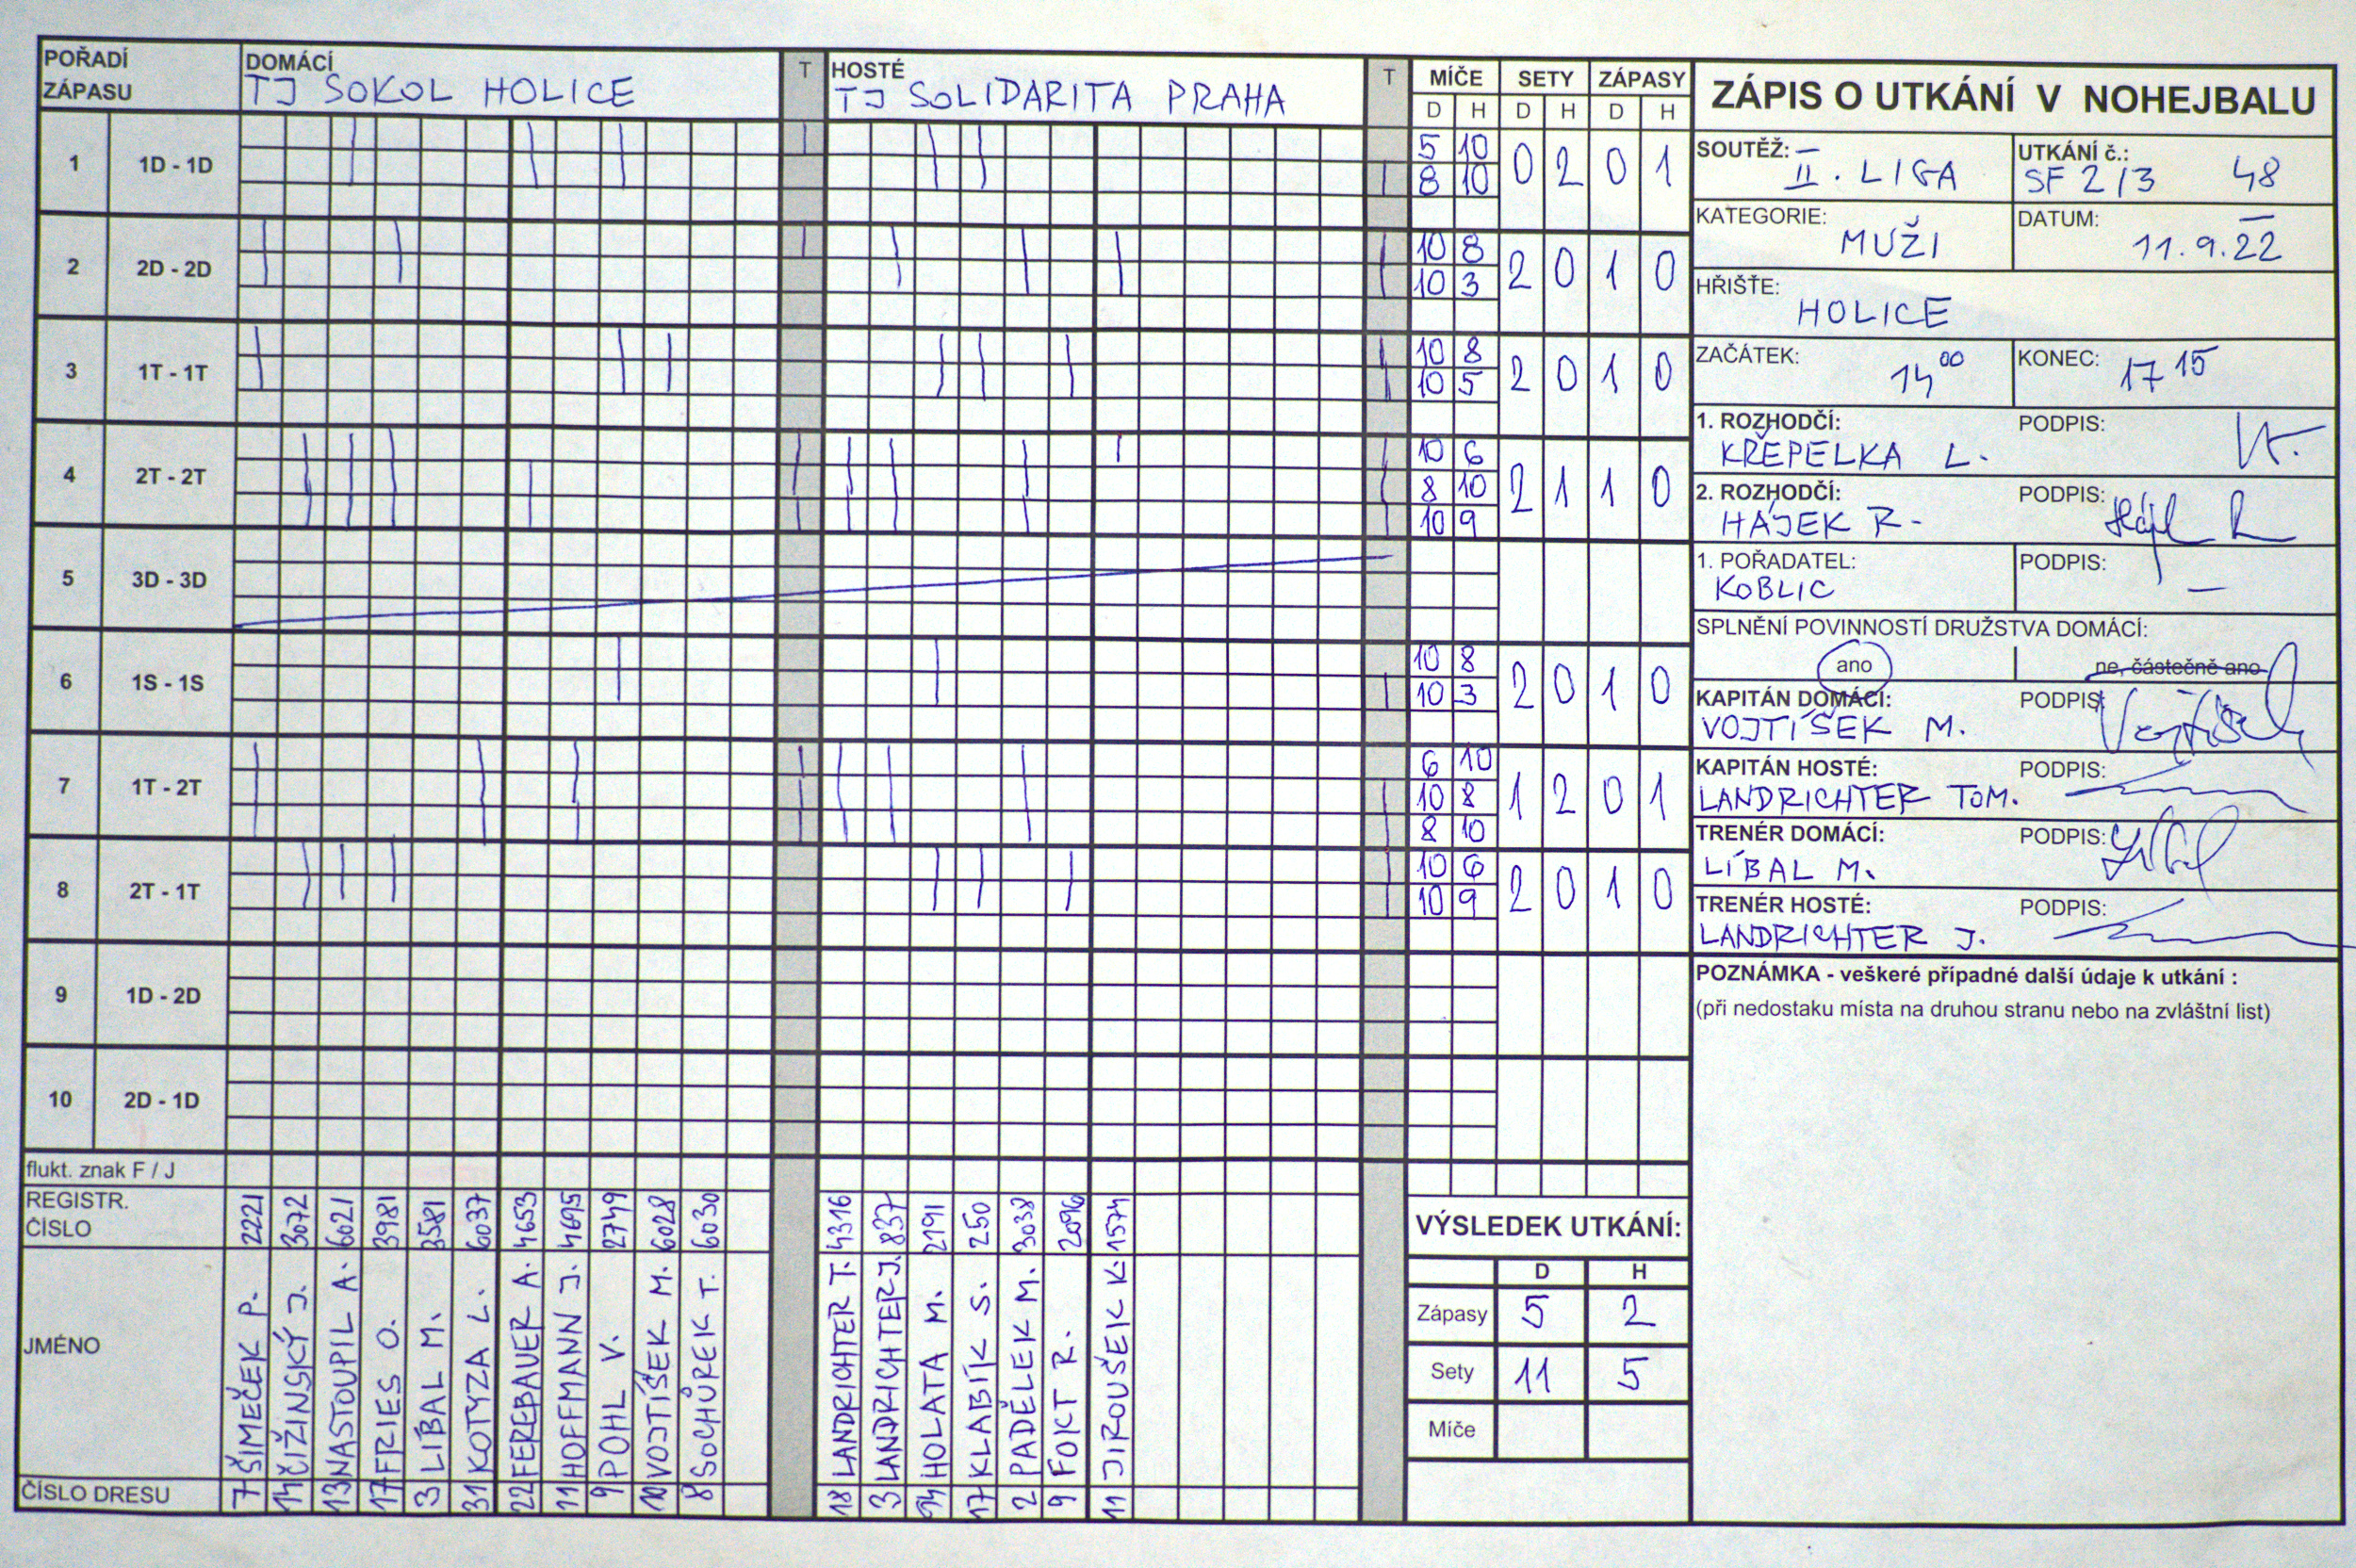 POŘADÍ ZÁPASU
DOMÁCÍ
TJ SOKOL HOLICE
T
HOSTÉ
TJ SOLIDARITA PRAHA
T
MÍČE SETY ZÁPASY
D H D H D H
1 1D - 1D
5 10
8 10
0 2 0 1
2 2D - 2D
10 8
10 3
2 0 1 0
3 1T - 1T
10 8
10 5
2 0 1 0
4 2T - 2T
10 6
8 10
10 9
2 1 1 0
5 3D - 3D
6 1S - 1S
10 8
10 3
2 0 1 0
7 1T - 2T
6 10
10 8
8 10
1 2 0 1
8 2T - 1T
10 6
10 9
2 0 1 0
9 1D - 2D
10 2D - 1D
flukt. znak F / J
REGISTR. ČÍSLO
2221 3072 6021 3981 3581 6037 4653 4695 2749 6028 6030
4316 837 2191 250 3038 2096 1574
JMÉNO
ŠIMEČEK P.
ČIŽINSKÝ J.
NASTOUPIL A.
FRIES O.
LÍBAL M.
KOTYZA L.
FEREBAUER A.
HOFFMANN J.
POHL V.
VOJTÍŠEK M.
SOCHŮREK T.
LANDRICHTER T.
LANDRICHTER J.
HOLATA M.
KLABÍK S.
PADĚLEK M.
FOKT R.
JIROUŠEK K.
ČÍSLO DRESU
7 14 13 17 3 31 22 11 9 10 8
18 3 14 17 2 9 11
VÝSLEDEK UTKÁNÍ:
D H
Zápasy 5 2
Sety 11 5
Míče
ZÁPIS O UTKÁNÍ V NOHEJBALU
SOUTĚŽ: II. LIGA
UTKÁNÍ č.: SF 2/3 48
KATEGORIE: MUŽI
DATUM: 11.9.22
HŘIŠTĚ: HOLICE
ZAČÁTEK: 14 00
KONEC: 17 15
1. ROZHODČÍ: PODPIS:
KŘEPELKA L.
2. ROZHODČÍ: PODPIS:
HÁJEK R.
1. POŘADATEL: PODPIS:
KOBLIC –
SPLNĚNÍ POVINNOSTÍ DRUŽSTVA DOMÁCÍ:
ano ne, částečně ano
KAPITÁN DOMÁCÍ: PODPIS:
VOJTÍŠEK M.
KAPITÁN HOSTÉ: PODPIS:
LANDRICHTER TOM.
TRENÉR DOMÁCÍ: PODPIS:
LÍBAL M.
TRENÉR HOSTÉ: PODPIS:
LANDRICHTER J.
POZNÁMKA - veškeré případné další údaje k utkání :
(při nedostaku místa na druhou stranu nebo na zvláštní list)